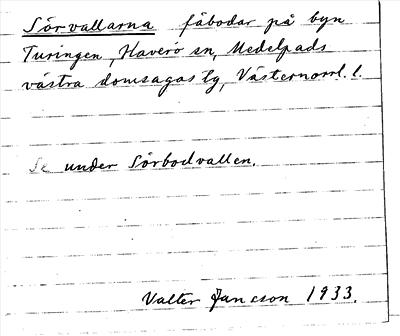 Sörvallarna fäbodar på byn
Turingen, Haverö sn, Medelpads
västra domsagas lg, Västernorrl. l.
Se under Sörbodvallen.
Valter Jansson 1933.